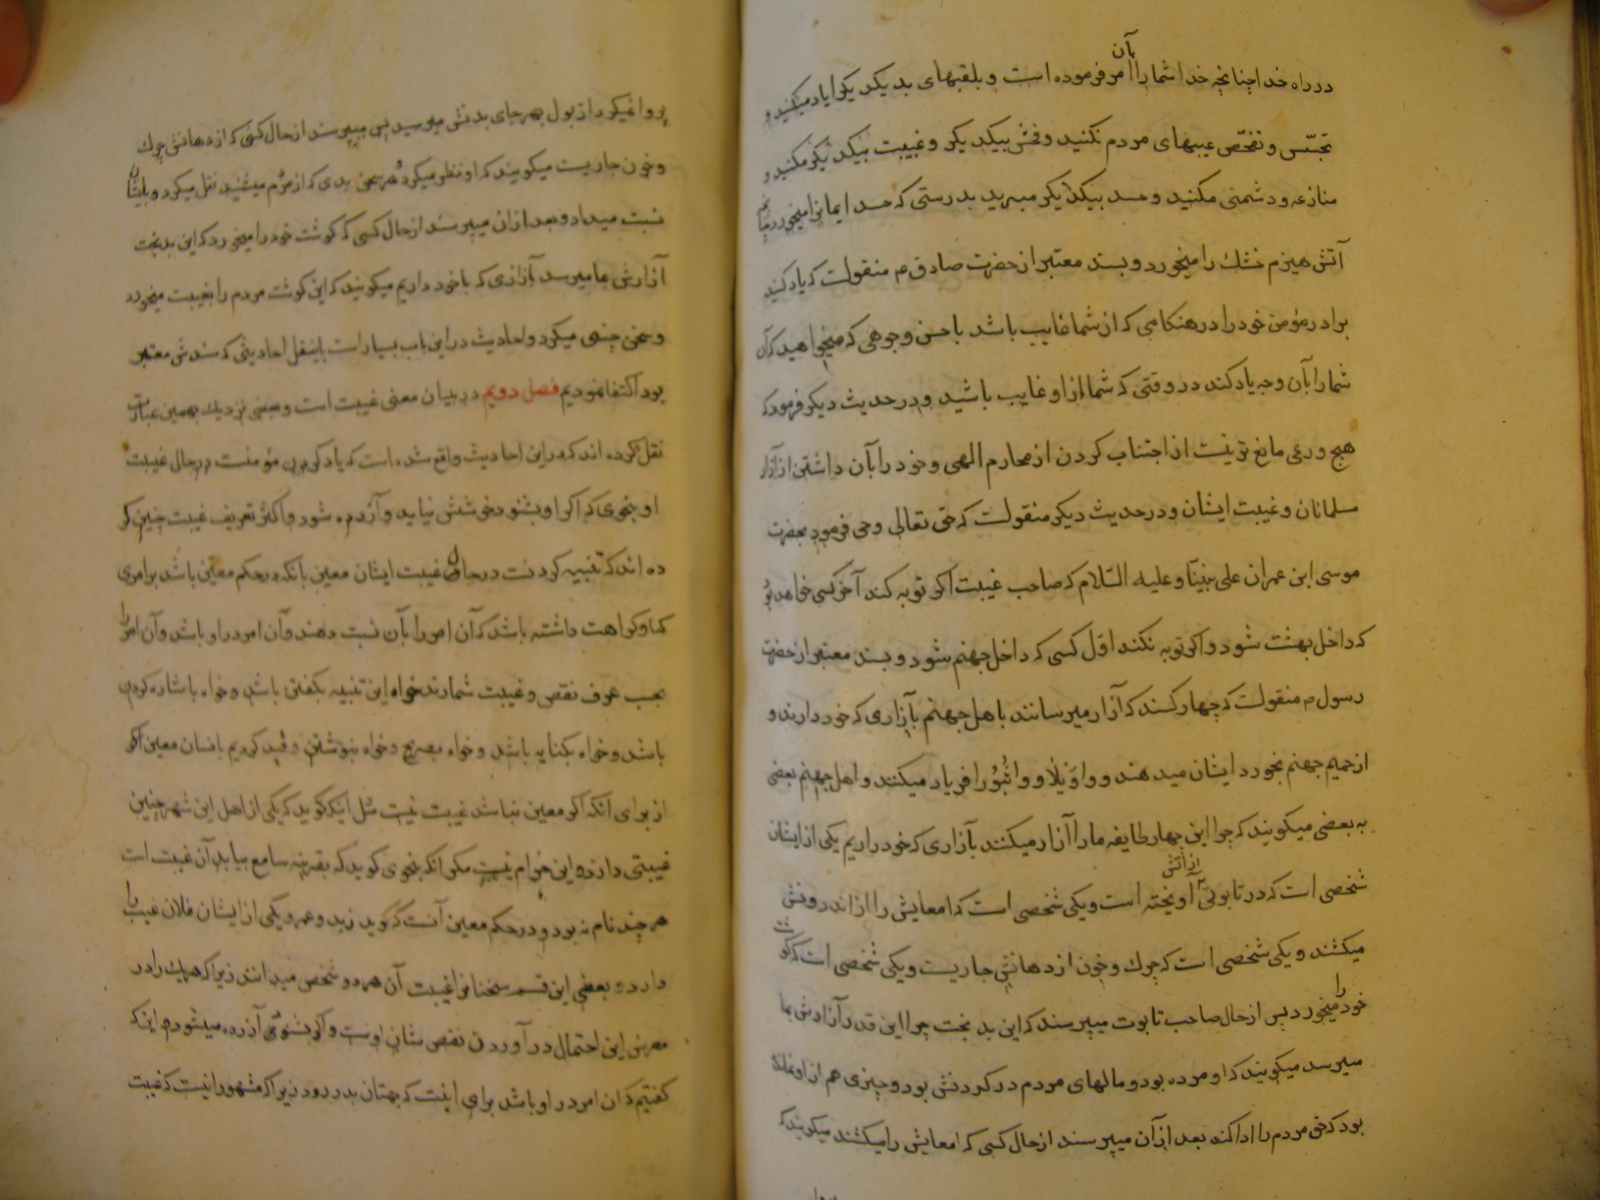 در راه خدا چنانچه خدا شما را بآن امر فرموده است و بلقبهای بد یکدیکر را یاد میکنید و
تجسّس و تفحّص عیبهای مردم نکنید و فحش بیکدیکر و غیبت یکدیکر مکنید و
منازعه و دشمنی مکنید و حسد بیکدیکر مبرید بدرستی که حسد ایمانرا میخورد چنانچه
آتش هیزم خشك را میخورد و بسند معتبر از حضرت صادق م منقولست که یاد کنید
برادر مؤمن خود را در هنکامی که از شما غایب باشد باحسن وجوهی که میخواهید که آن
شما را بآن وجه یاد کند در وقتی که شما از او غایب باشید و در حدیث دیکر فرمود که
هیچ ورعی مانع تر نیست از اجتناب کردن از محارم الهی و خود را بآن داشتن از آزار
مسلمانان و غیبت ایشان و در حدیث دیکر منقولست که حق تعالی وحی فرمود بحضرت
موسی ابن عمران علی نبیّنا و علیه السّلام که صاحب غیبت اکر توبه کند آخر کسی خواهد بود
که داخل بهشت شود و اکر توبه نکند اوّل کسی که داخل جهنم شود و بسند معتبر از حضرت
رسول م منقولست که چهار کسند که آزار میرسانند باهل جهنم بآزاری که خود دارند و
از حمیم جهنم بخورد ایشان میدهند و واویلا و واثبورا فریاد میکنند و اهل جهنم بعضی
به بعضی میکویند که چرا این چهار طایفه ما را آزار میکنند بآزاری که خود داریم یکی از ایشان
شخصی است که در تابوتی از آتش آویخته است و یکی شخصی است که امعایش را از اندرونش
میکشند و یکی شخصی است که چرك و خون از دهانش جاریست و یکی شخصی است که کوشت
خود را میخورد پس از حال صاحب تابوت میپرسند که این بد بخت چرا این قدر آزارش بما
میرسد میکویند که او مرده بود و مالهای مردم در کردنش بود و چیزی هم از او نمانده
بود که حق مردم را ادا کند بعد از آن میپرسند از حال کسی که امعایش را میکشند میکویند که
پروا نمیکرد از بول بهر جای بدنش میرسید پس میپرسند از حال کسی که از دهانش چرك
و خون جاریست میکویند که او نظر میکرد هر سخن بدی که از مردم میشنید نقل میکرد و بایشان
نسبت میداد و بعد از آن میپرسند از حال کسی که کوشت خود را میخورد که این بدبخت
آزارش بما میرسد بآزاری که با خود داریم میکویند که این کوشت مردم را بغیبت میخورد
و سخن چینی میکرد و احادیث در این باب بسیار است بنقل احادیثی که سندش معتبر
بود اکتفا نمودیم فصل دویم در بیان معنی غیبت است و بعضی نزدیك بهمین عبارت
نقل کرده اند که در این احادیث واقع شده است که یاد کردن مؤمنست در حال غیبت
او بنحوی که اکر او بشنود خوشش نیاید و آزرده شود و اکثر تعریف غیبت چنین کر
ده اند که تنبیه کردنست در حال غیبت ایشان معین یا آنکه در حکم معین باشد بر امری
که او کراهت داشته باشد که آن امر را بآن نسبت دهند و آن امر در او باشد و آن امر را
بحسب عرف نقص و غیبت شمارند خواه این تنبیه بکفتن باشد و خواه باشاره کردن
باشد و خواه بکنایه باشد و خواه بصریح و خواه بنوشتن و قید کردیم بانسان معین آنکه
از برای آنکه اکر معین نباشد غیبت نیست مثل اینکه کوید که یکی از اهل این شهر چنین
غیبتی دارد و این حرام نیست مکر آنکه بنحوی کوید که بقرینه سامع بیابد آن غیبت است
هر چند نام نه برد و در حکم معین آنست که کوید زید و عمرو یکی از ایشان فلان عیب را
دارد و بعضی این قسم سخنانرا غیبت آن هر دو شخص میدانند زیرا که هر یك را در
معرض این احتمال در آوردن نقص شان اوست و اکر بشنود آزرده میشود و اینکه
کفتیم که آن امر در او باشد برای اینست که بهتان بدر رود زیرا که مشهور اینست که غیبت